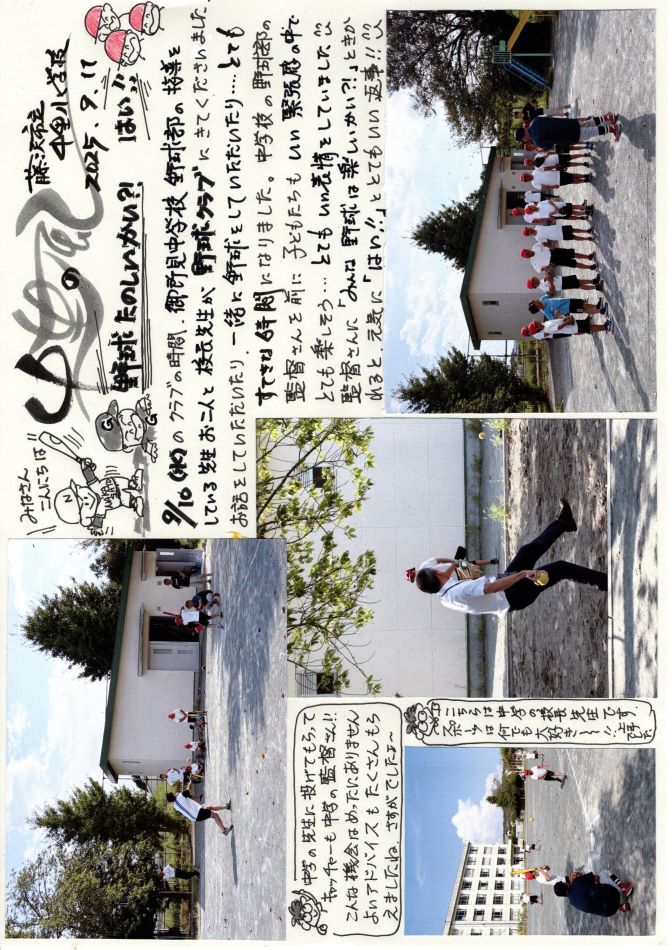 藤沢市立
中里小学校
2025.9.17
の
野球たのしいかい?!
はい!!
みなさん
こんにちは
9/10(水)のクラブの時間、御所見中学校 野球部の指導を
している先生お二人と校長先生が野球クラブにきてくださいました。
お話をしていただいたり、一緒に野球をしていただいたり…とても
すてきな時間になりました。中学校の野球部の
監督さんを前に子どもたちもいい緊張感の中で
とても楽しそう…とてもいい表情をしていました!!
監督さんに「みんな野球は楽しいかい?!」ときか
れると元気に「はい!!」ととてもいい返事!!
中学の先生に投げてもらって
キャッチャーも中学の監督さん!!
こんな機会はめったにありません
よいアドバイスもたくさんもら
えましたね。さすがでしたよ〜
こちらは中学の校長先生です。
スポーツは何でも大好き〜〜